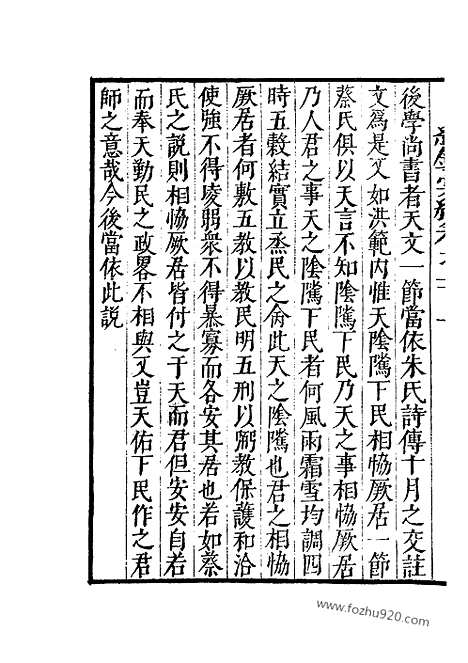 後學尚書者天文一節當依朱氏詩傳十月之交註
文爲是又如洪範内惟天陰隲下民相恊厥居一節
蔡氏俱以天言不知陰隲下民乃天之事相恊厥居
乃人君之事天之陰隲下民者何風雨霜雪均調四
時五穀結實立烝民之命此天之陰隲也君之相恊
厥居者何敷五教以教民明五刑以弼教保護和洽
使強不得凌弱衆不得暴寡而各安其居也若如蔡
氏之說則相恊厥居皆付之于天而君但安安自若
而奉天勤民之政畧不相與又豈天佑下民作之君
師之意哉今後當依此說
www.fozhu920.com